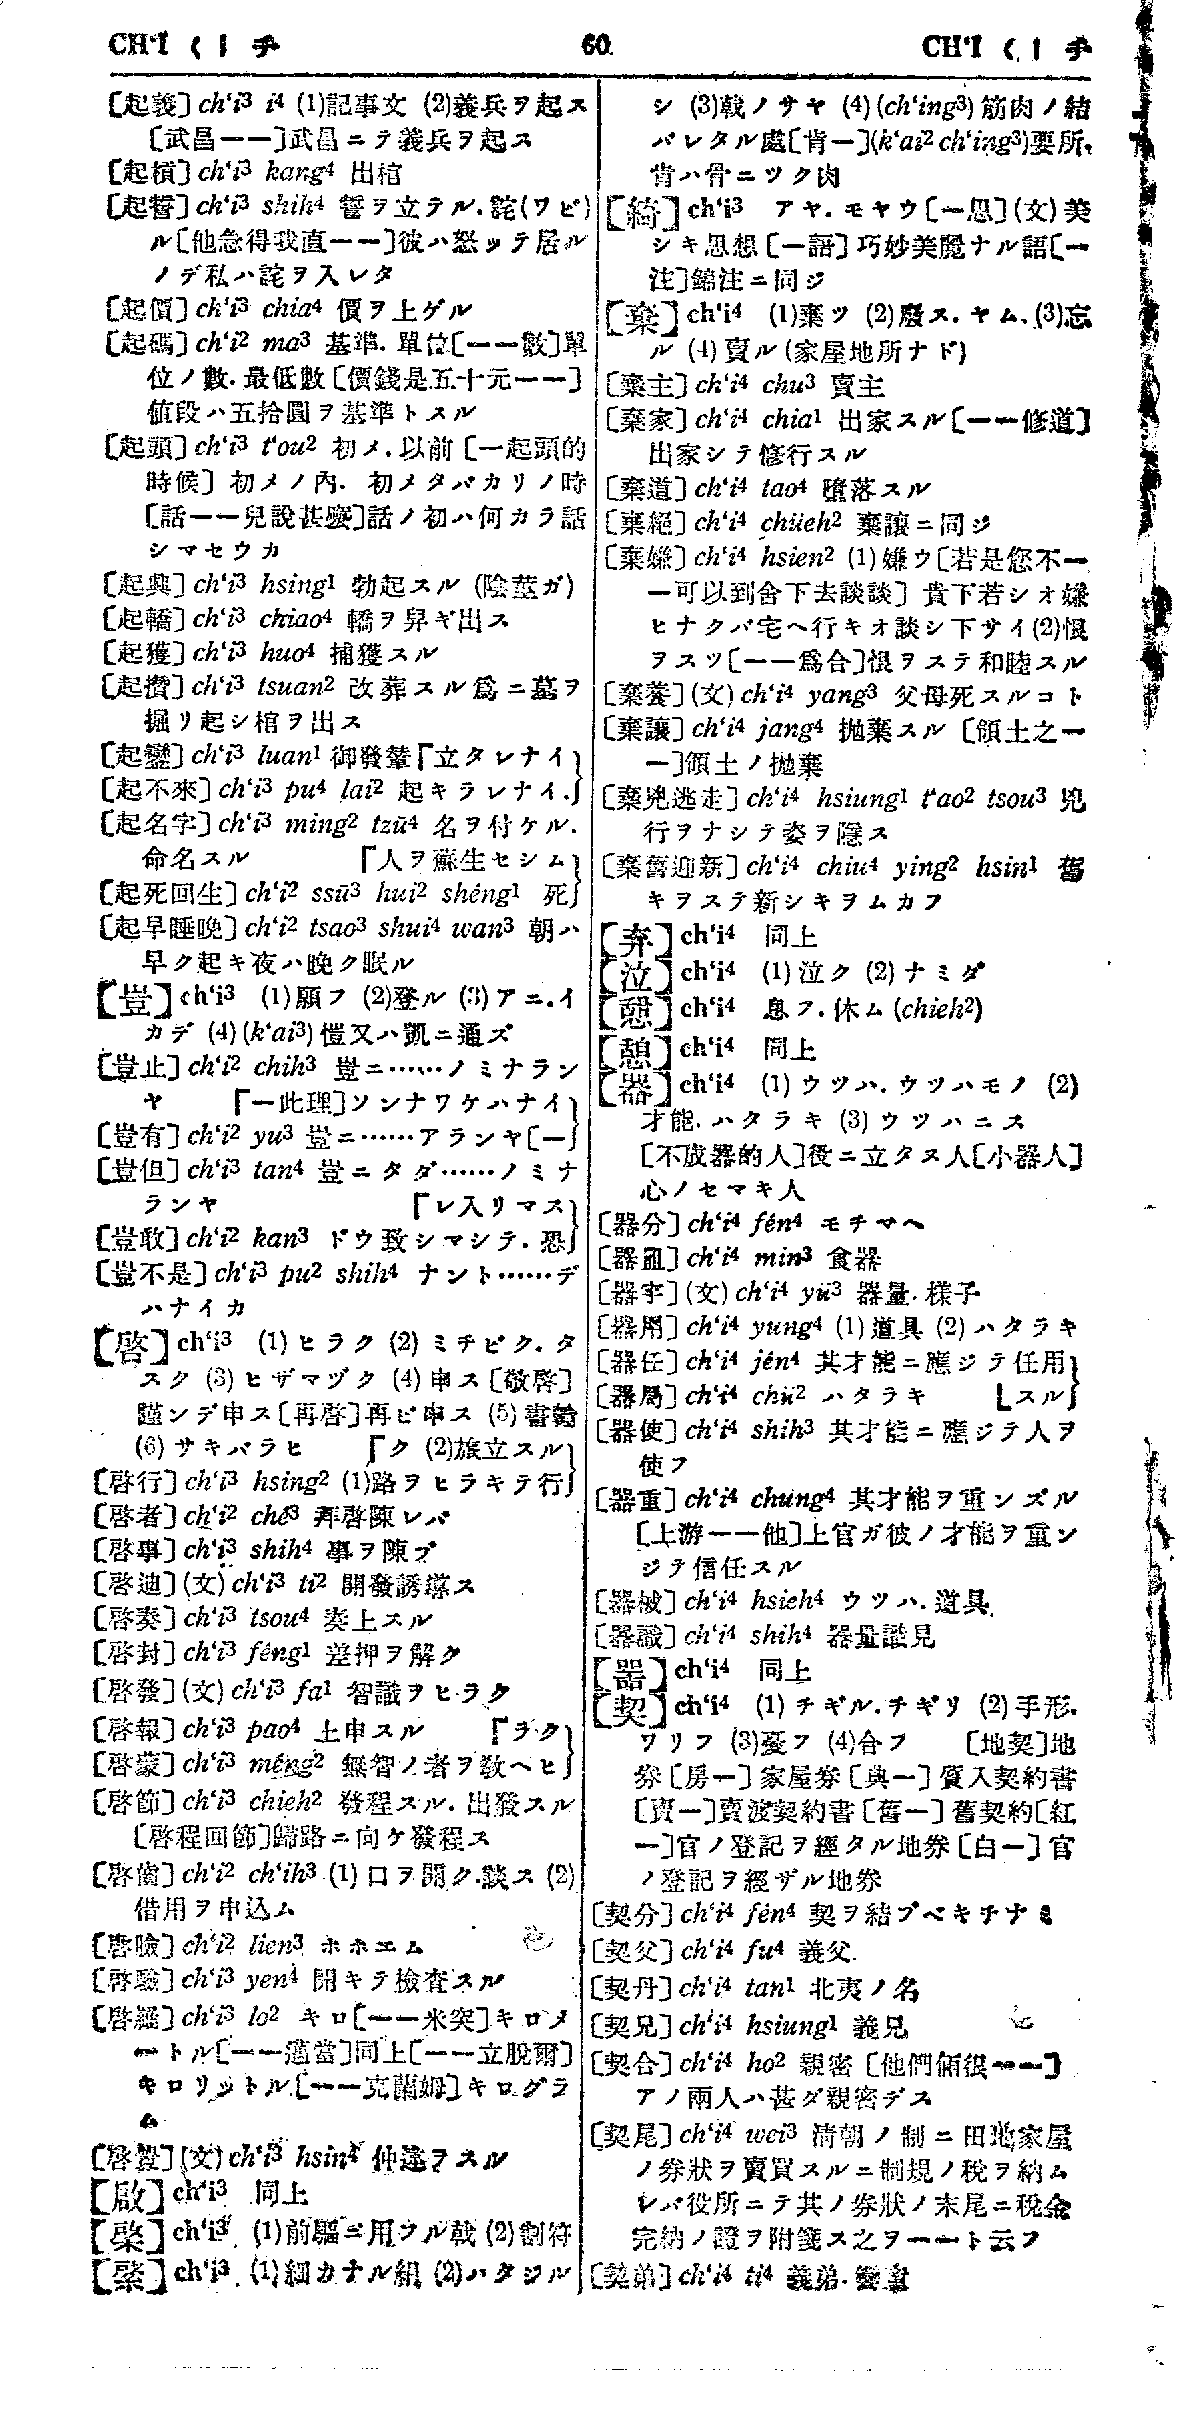 CH‘I くㄧ チ
60
CH‘I くㄧ チ
[起義] ch‘i³ i⁴ (1)記事文 (2)義兵ヲ起ス
[武昌一一]武昌ニテ義兵ヲ起ス
[起槓] ch‘i³ kang⁴ 出棺
[起誓] ch‘i³ shih⁴ 誓ヲ立テル.詫(ワビ)
ル[他急得我直一一]彼ハ怒ッテ居ル
ノデ私ハ詫ヲ入レタ
[起價] ch‘i³ chia⁴ 價ヲ上ゲル
[起碼] ch‘i² ma³ 基準.單位[一一數]單
位ノ數.最低數[價錢是五十元一一]
値段ハ五拾圓ヲ基準トスル
[起頭] ch‘i³ t‘ou² 初メ.以前[一起頭的
時候] 初メノ內. 初メタバカリノ時
[話一一兒說甚麼]話ノ初ハ何カラ話
シマセウカ
[起興] ch‘i³ hsing¹ 勃起スル (陰莖ガ)
[起轎] ch‘i³ chiao⁴ 轎ヲ舁ギ出ス
[起獲] ch‘i³ huo⁴ 捕獲スル
[起攢] ch‘i³ tsuan² 改葬スル爲ニ墓ヲ
掘リ起シ棺ヲ出ス
[起鑾] ch‘i³ luan¹ 御發輦「立タレナイ
[起不來] ch‘i³ pu⁴ lai² 起キラレナイ.
[起名字] ch‘i³ ming² tzŭ⁴ 名ヲ付ケル.
命名スル 「人ヲ蘇生セシム
[起死回生] ch‘i² ssŭ³ hui² shêng¹ 死
[起早睡晚] ch‘i² tsao³ shui⁴ wan³ 朝ハ
早ク起キ夜ハ晚ク眠ル
【豈】 ch‘i³ (1)願フ (2)登ル (3)アニ.イ
カデ (4)(k‘ai³)愷又ハ凱ニ通ズ
[豈止] ch‘i² chih³ 豈ニ……ノミナラン
ヤ 「一此理]ソンナワケハナイ
[豈有] ch‘i² yu³ 豈ニ……アランヤ[一
[豈但] ch‘i³ tan⁴ 豈ニタダ……ノミナ
ランヤ 「レ入リマス
[豈敢] ch‘i² kan³ ドウ致シマシテ.恐
[豈不是] ch‘i³ pu² shih⁴ ナント……デ
ハナイカ
【啓】 ch‘i³ (1)ヒラク (2)ミチビク.タ
スク (3)ヒザマヅク (4)申ス[敬啓]
謹ンデ申ス[再啓]再ビ申ス (5)書翰
(6)サキバラヒ 「ク (2)旅立スル
[啓行] ch‘i³ hsing² (1)路ヲヒラキテ行
[啓者] ch‘i² chê³ 拜啓陳レバ
[啓事] ch‘i³ shih⁴ 事ヲ陳ブ
[啓迪] (文) ch‘i³ ti² 開發誘導ス
[啓奏] ch‘i³ tsou⁴ 奏上スル
[啓封] ch‘i³ fêng¹ 差押ヲ解ク
[啓發] (文) ch‘i³ fa¹ 智識ヲヒラク
[啓報] ch‘i³ pao⁴ 上申スル 「ラク
[啓蒙] ch‘i³ mêng² 無智ノ者ヲ敎ヘヒ
[啓節] ch‘i³ chieh² 發程スル.出發スル
[啓程回節]歸路ニ向ケ發程ス
[啓齒] ch‘i² ch‘ih³ (1)口ヲ開ク.談ス (2)
借用ヲ申込ム
[啓臉] ch‘i² lien³ ホホエム
[啓驗] ch‘i³ yen⁴ 開キテ檢査スル
[啓羅] ch‘i³ lo² キロ[一一米突]キロメ
ートル[一一邁當]同上[一一立脫爾]
キロリットル[一一克蘭姆]キログラ
ム
[啓釁] (文) ch‘i³ hsin⁴ 仲違ヲスル
【啟】 ch‘i³ 同上
【棨】 ch‘i³ (1)前驅ニ用フル戟 (2)割符
【綮】 ch‘i³ (1)細カナル絹 (2)ハタジル
シ (3)戟ノサヤ (4)(ch‘ing³)筋肉ノ結
バレタル處[肯一](k‘ai² ch‘ing³)要所,
肯ハ骨ニツク肉
【綺】 ch‘i³ アヤ.モヤウ[一思](文)美
シキ思想[一語]巧妙美麗ナル語[一
注]錦注ニ同ジ
【棄】 ch‘i⁴ (1)棄ツ (2)廢ス.ヤム.(3)忘
ル (4)賣ル(家屋地所ナド)
[棄主] ch‘i⁴ chu³ 賣主
[棄家] ch‘i⁴ chia¹ 出家スル[一一修道]
出家シテ修行スル
[棄道] ch‘i⁴ tao⁴ 墮落スル
[棄絕] ch‘i⁴ chüeh² 棄讓ニ同ジ
[棄嫌] ch‘i⁴ hsien² (1)嫌ウ[若是您不一
一可以到舍下去談談] 貴下若シオ嫌
ヒナクバ宅ヘ行キオ談シ下サイ(2)恨
ヲスツ[一一爲合]恨ヲステ和睦スル
[棄養] (文) ch‘i⁴ yang³ 父母死スルコト
[棄讓] ch‘i⁴ jang⁴ 拋棄スル [領土之一
一]領土ノ拋棄
[棄兇逃走] ch‘i⁴ hsiung¹ t‘ao² tsou³ 兇
行ヲナシテ姿ヲ隱ス
[棄舊迎新] ch‘i⁴ chiu⁴ ying² hsin¹ 舊
キヲステ新シキヲムカフ
【弃】 ch‘i⁴ 同上
【泣】 ch‘i⁴ (1)泣ク (2)ナミダ
【憇】 ch‘i⁴ 息フ.休ム (chieh²)
【憩】 ch‘i⁴ 同上
【器】 ch‘i⁴ (1)ウツハ.ウツハモノ (2)
才能.ハタラキ (3)ウツハニス
[不成器的人]役ニ立タヌ人[小器人]
心ノセマキ人
[器分] ch‘i⁴ fên⁴ モチマヘ
[器皿] ch‘i⁴ min³ 食器
[器宇] (文) ch‘i⁴ yü³ 器量.樣子
[器用] ch‘i⁴ yung⁴ (1)道具 (2)ハタラキ
[器任] ch‘i⁴ jên⁴ 其才能ニ應ジテ任用
[器局] ch‘i⁴ chü² ハタラキ ⌊スル
[器使] ch‘i⁴ shih³ 其才能ニ應ジテ人ヲ
使フ
[器重] ch‘i⁴ chung⁴ 其才能ヲ重ンズル
[上游一一他]上官ガ彼ノ才能ヲ重ン
ジテ信任スル
[器械] ch‘i⁴ hsieh⁴ ウツハ.道具
[器識] ch‘i⁴ shih⁴ 器量識見
【噐】 ch‘i⁴ 同上
【契】 ch‘i⁴ (1)チギル.チギリ (2)手形.
ワリフ (3)憂フ (4)合フ [地契]地
券[房一]家屋券[典一]質入契約書
[賣一]賣渡契約書[舊一]舊契約[紅
一]官ノ登記ヲ經タル地券[白一]官
ノ登記ヲ經ザル地券
[契分] ch‘i⁴ fên⁴ 契ヲ結ブベキチナミ
[契父] ch‘i⁴ fu⁴ 義父
[契丹] ch‘i⁴ tan¹ 北夷ノ名
[契兄] ch‘i⁴ hsiung¹ 義兄
[契合] ch‘i⁴ ho² 親密 [他們倆很一一]
アノ兩人ハ甚ダ親密デス
[契尾] ch‘i⁴ wei³ 淸朝ノ制ニ田地家屋
ノ券狀ヲ賣買スルニ制規ノ稅ヲ納ム
レバ役所ニテ其ノ券狀ノ末尾ニ稅金
完納ノ證ヲ附箋ス之ヲ一一ト云フ
[契弟] ch‘i⁴ ti⁴ 義弟.孌童